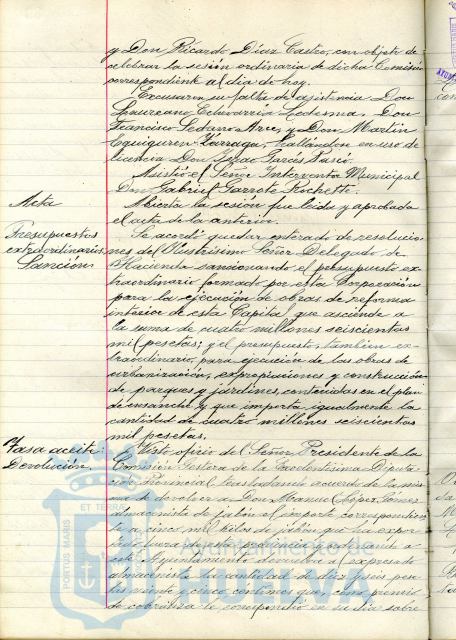 y Don Ricardo Díaz Castro, con objeto de
celebrar la sesión ordinaria de dicha Comisión
correspondiente al día de hoy.
Excusaron su falta de asistencia Don
Laureano Echevarría Ledesma, Don
Francisco Sedano Arce, y Don Martín
Eguiguren Zorraga, hallándose en uso de
licencia Don Isaac Garcés Vasco.
Asistió el Señor Interventor Municipal
Don Gabriel Garrote Rochette.
Acta
Abierta la sesión fue leída y aprobada
el acta de la anterior.
Presupuestos
extraordinarios
Sanción
Se acordó quedar enterado de resolucio-
nes del Ilustrísimo Señor Delegado de
Hacienda sancionando el presupuesto ex-
traordinario formado por esta Corporación
para la ejecución de obras de reforma
interior de esta Capital que asciende a
la suma de cuatro millones seiscientas
mil pesetas; y el presupuesto, también ex-
traordinario, para ejecución de las obras de
urbanización, expropiaciones y construcción
de parques y jardines, contenidas en el plan
de ensanche y que importa igualmente la
cantidad de cuatro millones seiscientas
mil pesetas.
Tasa aceite
Devolución.
Visto oficio del Señor Presidente de la
Comisión Gestora de la Excelentísima Diputa-
ción Provincial, trasladando acuerdo de la mis-
ma de devolver a Don Manuel López Gómez
almacenista de jabón el importe correspondien-
te a cinco mil kilos de jabón que ha expor-
tado fuera de esta provincia,
este Ayuntamiento devuelva al expresado
almacenista la cantidad de diez y seis pese-
tas nueve y cinco céntimos que, como premio
de cobranza le correspondió en su día sobre
PORTUS MARIS
ET TERRAE
Ayuntamiento de
HUELVA